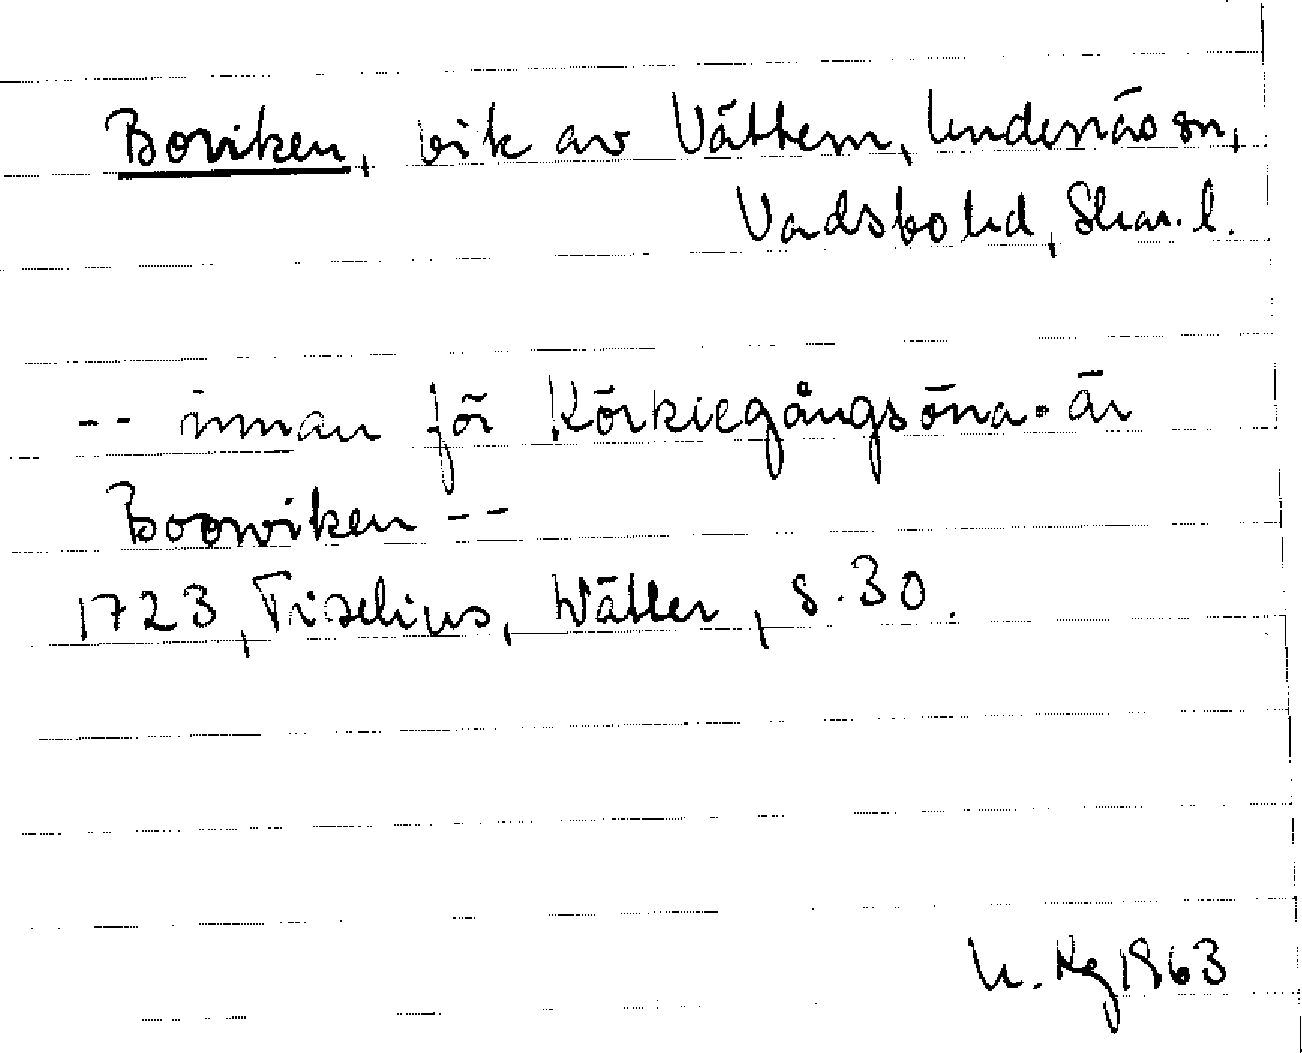 Boviken, vik av Vättern, Undenäs sn,
Vadsbo hd, Skar. l.
-- innan för Körkiegångsöna. är
Boowiken --
1723, Tiselius, Wätter, s. 30.
1963